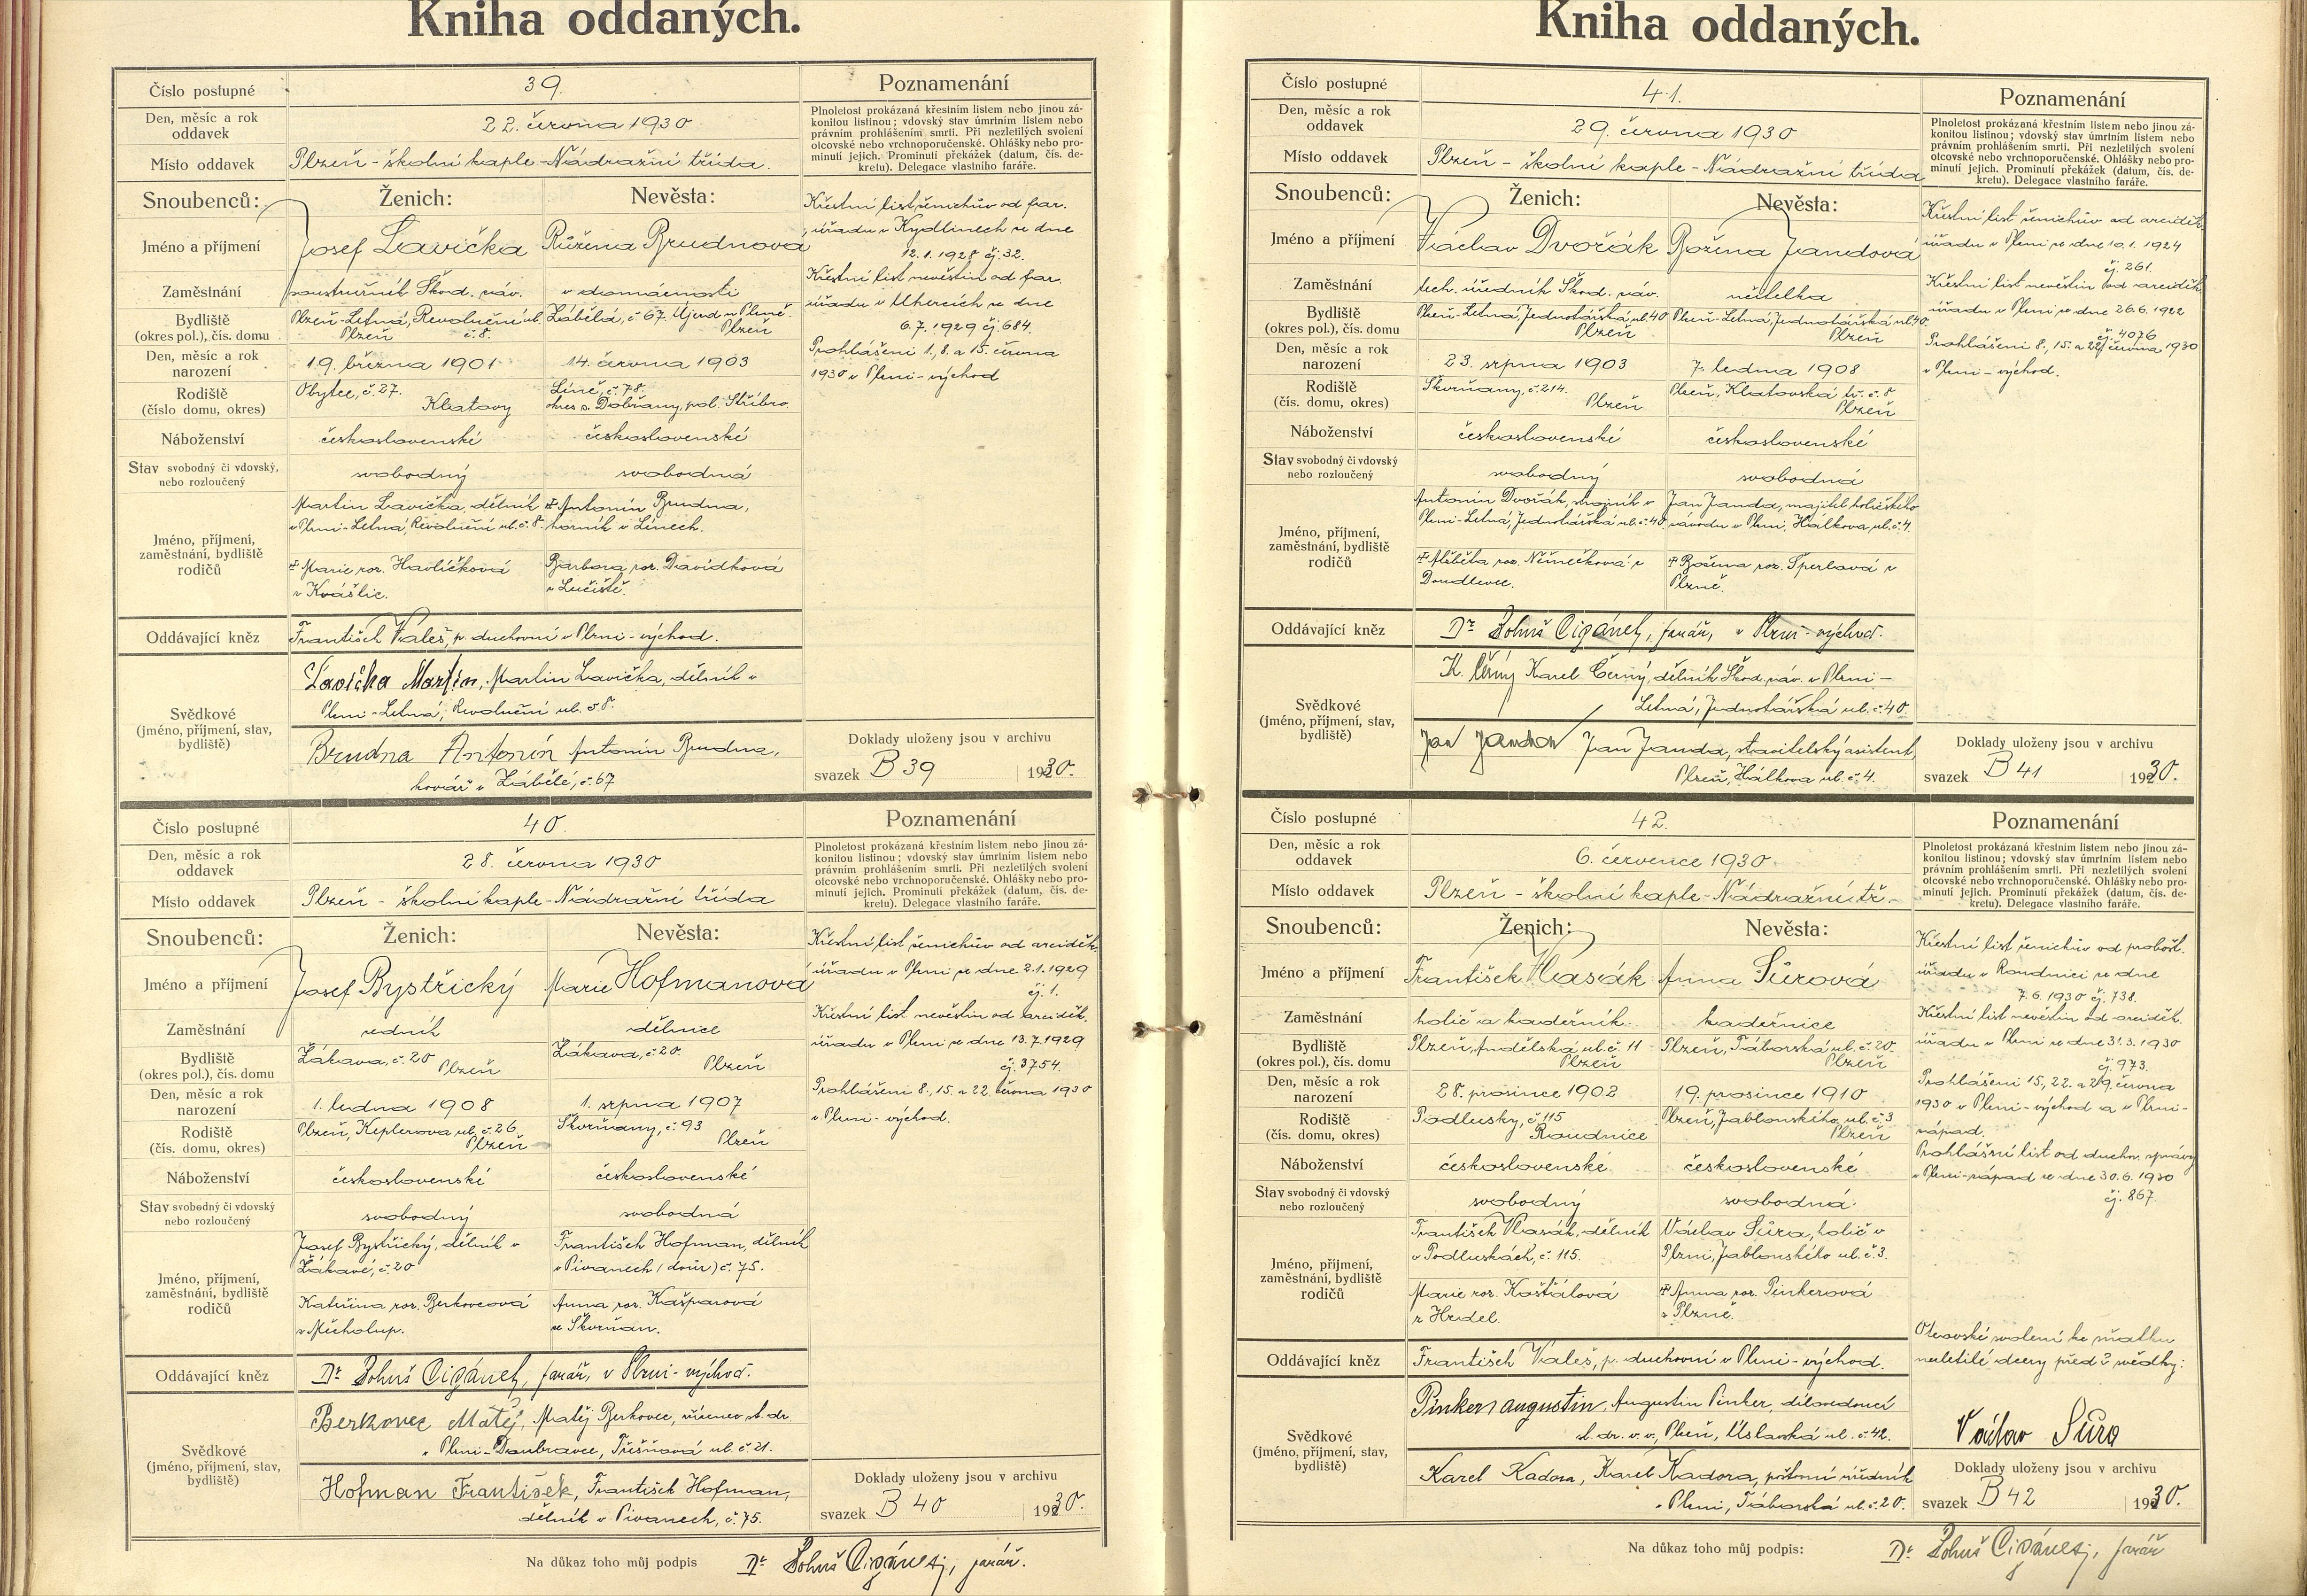 Kniha oddaných.
Číslo postupné
39.
Den, měsíc a rok
oddavek
22. června 1930
Místo oddavek
Plzeň - školní kaple - Nádražní třída.
Poznamenání
Plnoletost prokázaná křestním listem nebo jinou zá-
konitou listinou; vdovský stav úmrtním listem nebo
právním prohlášením smrti. Při nezletilých svolení
otcovské nebo vrchnoporučenské. Ohlášky nebo pro-
minutí jejich. Prominutí překážek (datum, čís. de-
kretu). Delegace vlastního faráře.
Snoubenců:
Ženich:
Nevěsta:
Jméno a příjmení
Josef Lavička
Růžena Brudnová
Zaměstnání
soustružník Škod. záv.
v domácnosti
Bydliště
(okres pol.), čís. domu
Plzeň-Letná, Revoluční ul.
Plzeň č. 8.
Zábělá, č. 67. Újezd u Plzně.
Plzeň
Den, měsíc a rok
narození
19. března 1901
14. června 1903
Rodiště
(číslo domu, okres)
Obytce, č. 27.
Klatovy
Líně, č. 78.
okres s. Dobřany, pol. Stříbro.
Náboženství
československé
československé
Stav svobodný či vdovský,
nebo rozloučený
svobodný
svobodná
Jméno, příjmení,
zaměstnání, bydliště
rodičů
Martin Lavička, dělník
v Plzni-Letná, Revoluční ul. č. 8.
Antonín Brudna,
horník v Líních.
Marie roz. Havlíčková
z Kvášlic.
Barbora roz. Davídková
z Lučiště.
Oddávající kněz
František Valeš, p. duchovní v Plzni-východ.
Svědkové
(jméno, příjmení, stav,
bydliště)
Lavička Martin, Martin Lavička, dělník v
Plzni-Letná, Revoluční ul. č. 8.
Brudna Antonín Antonín Brudna,
kovář v Zábělé, č. 67
Křestní list ženichův od far.
úřadu v Kydlinech ze dne
12.1.1928 čj. 32.
Křestní list nevěstin od far.
úřadu v Uhercích ze dne
6.7.1929 čj. 684.
Prohlášeni 1., 8. a 15. června
1930 v Plzni-východ
Doklady uloženy jsou v archivu
svazek B 39 1930.
Číslo postupné
40.
Den, měsíc a rok
oddavek
28. června 1930
Místo oddavek
Plzeň - školní kaple - Nádražní třída
Poznamenání
Plnoletost prokázaná křestním listem nebo jinou zá-
konitou listinou; vdovský stav úmrtním listem nebo
právním prohlášením smrti. Při nezletilých svolení
otcovské nebo vrchnoporučenské. Ohlášky nebo pro-
minutí jejich. Prominutí překážek (datum, čís. de-
kretu). Delegace vlastního faráře.
Snoubenců:
Ženich:
Nevěsta:
Jméno a příjmení
Josef Bystřický
Marie Hofmanová
Zaměstnání
zedník
dělnice
Bydliště
(okres pol.), čís. domu
Žákava, č. 20 Plzeň
Žákava, č. 20.
Plzeň
Den, měsíc a rok
narození
1. ledna 1908
1. srpna 1907
Rodiště
(čís. domu, okres)
Plzeň, Keplerova ul. č. 26.
Plzeň
Škvrňany, č. 93
Plzeň
Náboženství
československé
československé
Stav svobodný či vdovský
nebo rozloučený
svobodný
svobodná
Jméno, příjmení,
zaměstnání, bydliště
rodičů
Josef Bystřický, dělník v
Žákavé, č. 20
František Hofman, dělník
v Pivanech (dvůr) č. 75.
Kateřina roz. Berkovcová
z Měcholup.
Anna roz. Kašparová
ze Škvrňan.
Oddávající kněz
Dr. Bohuš Cigánek, farář, v Plzni-východ.
Svědkové
(jméno, příjmení, stav,
bydliště)
Berkovec Matěj, Matěj Berkovec, zřízenec st. dr.
v Plzni-Doubravce, Třešňová ul. č. 21.
Hofman František, František Hofman,
dělník v Pivanech, č. 75.
Křestní list ženichův od arciděk.
úřadu v Plzni ze dne 2.1.1929
čj. 1.
Křestní list nevěstin od arciděk.
úřadu v Plzni ze dne 13.7.1929
čj. 3754.
Prohlášeni 8., 15. a 22. června 1930
v Plzni-východ.
Doklady uloženy jsou v archivu
svazek B 40 1930.
Na důkaz toho můj podpis Dr. Bohuš Cigánek, farář.
Kniha oddaných.
Číslo postupné
41.
Den, měsíc a rok
oddavek
29. června 1930
Místo oddavek
Plzeň - školní kaple - Nádražní třída
Poznamenání
Plnoletost prokázaná křestním listem nebo jinou zá-
konitou listinou; vdovský stav úmrtním listem nebo
právním prohlášením smrti. Při nezletilých svolení
otcovské nebo vrchnoporučenské. Ohlášky nebo pro-
minutí jejich. Prominutí překážek (datum, čís. de-
kretu). Delegace vlastního faráře.
Snoubenců:
Ženich:
Nevěsta:
Jméno a příjmení
Václav Dvořák
Božena Jandová
Zaměstnání
tech. úředník Škod. záv.
učitelka
Bydliště
(okres pol.), čís. domu
Plzeň-Letná, Jednotářská ul. 40
Plzeň
Plzeň-Letná, Jednotářská ul. 40.
Plzeň
Den, měsíc a rok
narození
23. srpna 1903
7. ledna 1908
Rodiště
(čís. domu, okres)
Škvrňany, č. 214.
Plzeň
Plzeň, Klatovská tř. č. 8
Plzeň
Náboženství
československé
československé
Stav svobodný či vdovský
nebo rozloučený
svobodný
svobodná
Jméno, příjmení,
zaměstnání, bydliště
rodičů
Antonín Dvořák, strojník v
Plzni-Letná, Jednotářská ul. č. 40.
Jan Janda, majitel holičského
závodu v Plzni, Hálkova ul. č. 4.
Alžběta roz. Němečková z
Doudlevec.
Božena roz. Šperlová z
Plzně.
Oddávající kněz
Dr. Bohuš Cigánek, farář, v Plzni-východ.
Svědkové
(jméno, příjmení, stav,
bydliště)
K. Černý Karel Černý, dělník Škod. záv. v Plzni -
Letná, Jednotářská ul. č. 40.
Jan Janda Jan Janda, stavitelský asistent,
Plzeň, Hálkova ul. č. 4.
Křestní list ženichův od arciděk.
úřadu v Plzni ze dne 10.1.1924
čj. 261.
Křestní list nevěstin od arciděk.
úřadu v Plzni ze dne 26.6.1922
čj. 4076
Prohlášeni 8., 15. a 22. června 1930
v Plzni-východ.
Doklady uloženy jsou v archivu
svazek B 41 1930.
Číslo postupné
42.
Den, měsíc a rok
oddavek
6. července 1930
Místo oddavek
Plzeň - školní kaple - Nádražní tř.
Poznamenání
Plnoletost prokázaná křestním listem nebo jinou zá-
konitou listinou; vdovský stav úmrtním listem nebo
právním prohlášením smrti. Při nezletilých svolení
otcovské nebo vrchnoporučenské. Ohlášky nebo pro-
minutí jejich. Prominutí překážek (datum, čís. de-
kretu). Delegace vlastního faráře.
Snoubenců:
Ženich:
Nevěsta:
Jméno a příjmení
František Vlasák
Anna Šůrová
Zaměstnání
holič a kadeřník.
kadeřnice
Bydliště
(okres pol.), čís. domu
Plzeň, Andělská ul. č. 11
Plzeň
Plzeň, Táborská ul. č. 20.
Plzeň
Den, měsíc a rok
narození
28. prosince 1902
19. prosince 1910
Rodiště
(čís. domu, okres)
Podlusky, č. 115
Roudnice
Plzeň, Jablonského ul. č. 3
Plzeň
Náboženství
československé
československé
Stav svobodný či vdovský
nebo rozloučený
svobodný
svobodná.
Jméno, příjmení,
zaměstnání, bydliště
rodičů
František Vlasák, dělník
v Podluskách, č. 115.
Václav Šůra, holič v
Plzni, Jablonského ul. č. 3.
Marie roz. Košťálová
z Hrdel.
Anna roz. Pinkerová
z Plzně.
Oddávající kněz
František Valeš, p. duchovní v Plzni-východ.
Svědkové
(jméno, příjmení, stav,
bydliště)
Pinker Augustin, Augustin Pinker, dílovedoucí
st. dr. v. v., Plzeň, Úslavská ul. č. 42.
Karel Kadora, Karel Kadora, poštovní úředník
v Plzni, Táborská ul. č. 20.
Křestní list ženichův od probošt.
úřadu v Roudnici ze dne
7.6.1930 čj. 738.
Křestní list nevěstin od arciděk.
úřadu v Plzni ze dne 31.3.1930
čj. 973.
Prohlášeni 15., 22. a 29. června
1930 v Plzni-východ a v Plzni-
západ.
Prohlášní list od duchov. správy
v Plzni-západ ze dne 30.6.1930
čj. 867.
Otcovské svolení ke sňatku
nezletilé dcery před 2 svědky:
Václav Šůra
Doklady uloženy jsou v archivu
svazek B 42 1930.
Na důkaz toho můj podpis: Dr. Bohuš Cigánek, farář